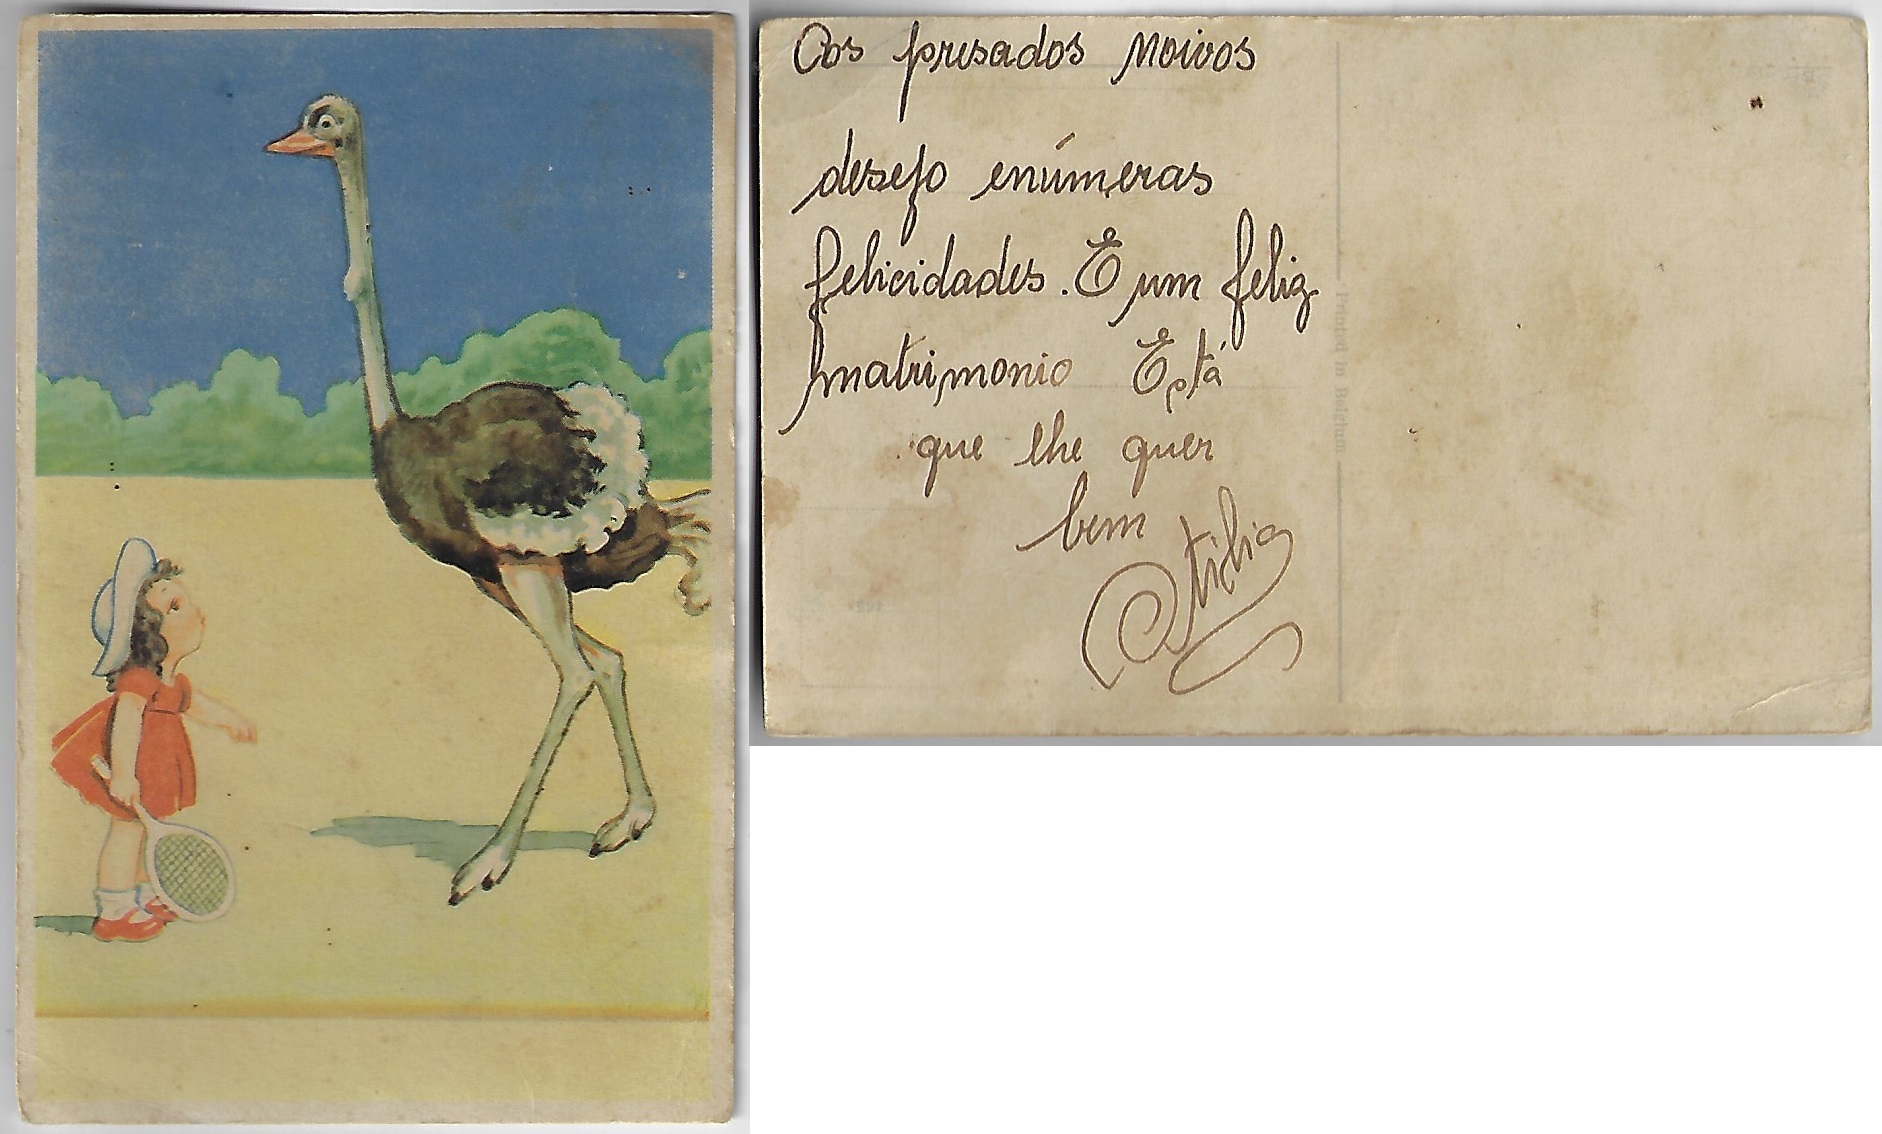 Aos presados noivos
desejo enúmeras
felicidades. E um feliz
matrimonio Está
que lhe quer
bem
Otilia
Printed in Belgium